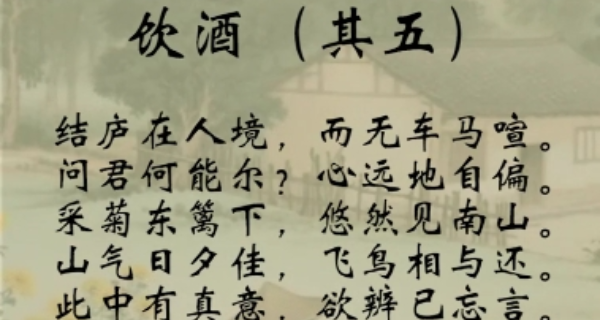 饮酒（其五）
结庐在人境，而无车马喧。
问君何能尔？心远地自偏。
采菊东篱下，悠然见南山。
山气日夕佳，飞鸟相与还。
此中有真意，欲辨已忘言。